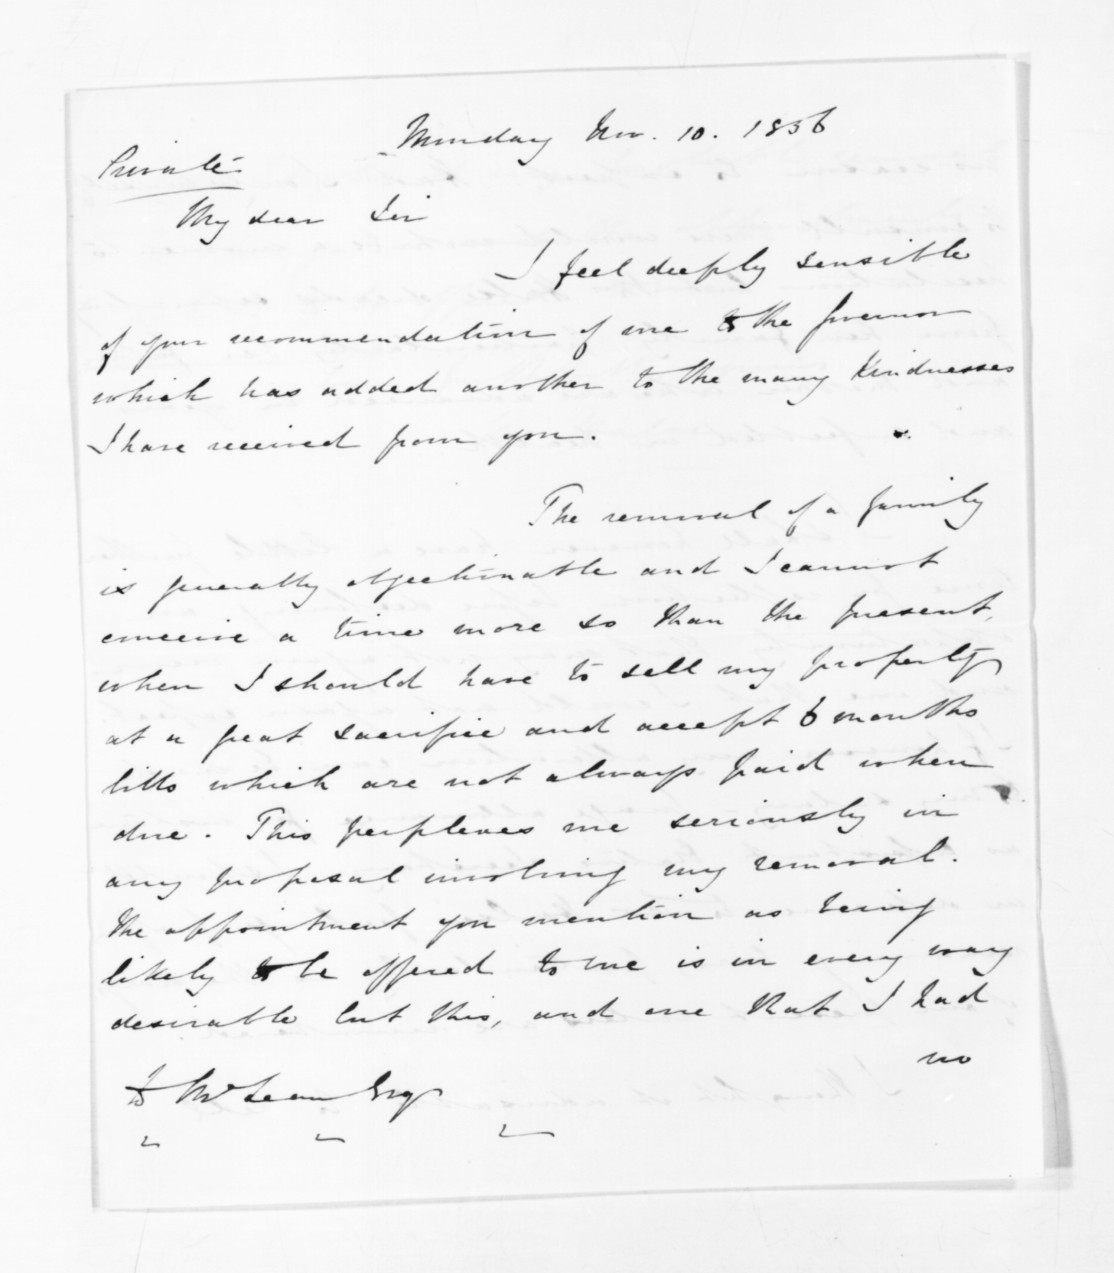 Monday Nov. 10. 1856
Private
My dear Sir
I feel deeply sensible
of your recommendation of me to the Governor
which has added another to the many Kindnesses
I have received from you.
The removal of a family
is generally objectionable and I cannot
conceive a time more so than the present,
when I should have to sell my property
at a great sacrifice and accept 6 months
bills which are not always paid when
due. This perplexes me seriously in
any proposal involving my removal.
The appointment you mention as being
likely to be offered to me is in every way
desirable but this, and one that I had
no
to McLean Esq